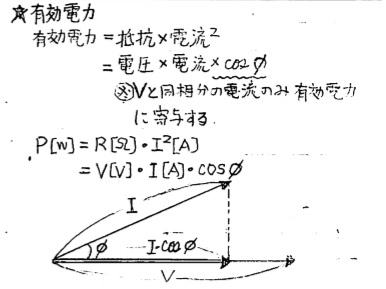 ☆有効電力
有効電力＝抵抗×電流²
＝電圧×電流×cosφ
※Vと同相分の電流のみ有効電力
に寄与する.
P[W]＝R[Ω]・I²[A]
＝V[V]・I[A]・COSφ
I
φ
I・cosφ
V